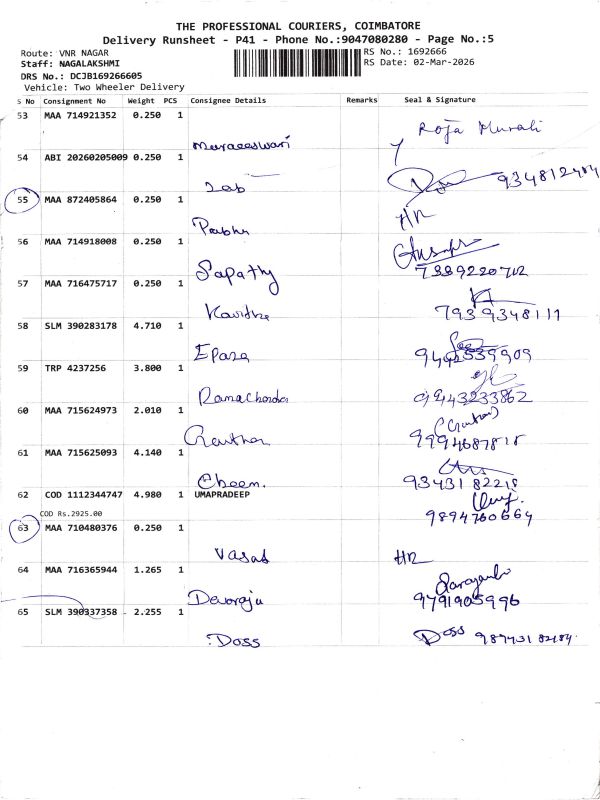 THE PROFESSIONAL COURIERS, COIMBATORE
Delivery Runsheet - P41 - Phone No.:9047080280 - Page No.:5
Route: VNR NAGAR
RS No.: 1692666
Staff: NAGALAKSHMI
RS Date: 02-Mar-2026
DRS No.: DCJB169266605
Vehicle: Two Wheeler Delivery
S No Consignment No Weight PCS Consignee Details Remarks Seal & Signature
53 MAA 714921352 0.250 1
Roja Murali
54 ABI 20260205009 0.250 1
55 MAA 872405864 0.250 1
HR
56 MAA 714918008 0.250 1
Sapathy
7339220702
57 MAA 716475717 0.250 1
Kavitha
7939348111
58 SLM 390283178 4.710 1
59 TRP 4237256 3.800 1
60 MAA 715624973 2.010 1
9994687818
61 MAA 715625093 4.140 1
9343182218
62 COD 1112344747 4.980 1 UMAPRADEEP
COD Rs.2925.00
9894760664
63 MAA 710480376 0.250 1
HR
64 MAA 716365944 1.265 1
Devaraju
9791905996
65 SLM 390337358 2.255 1
Doss
Doss